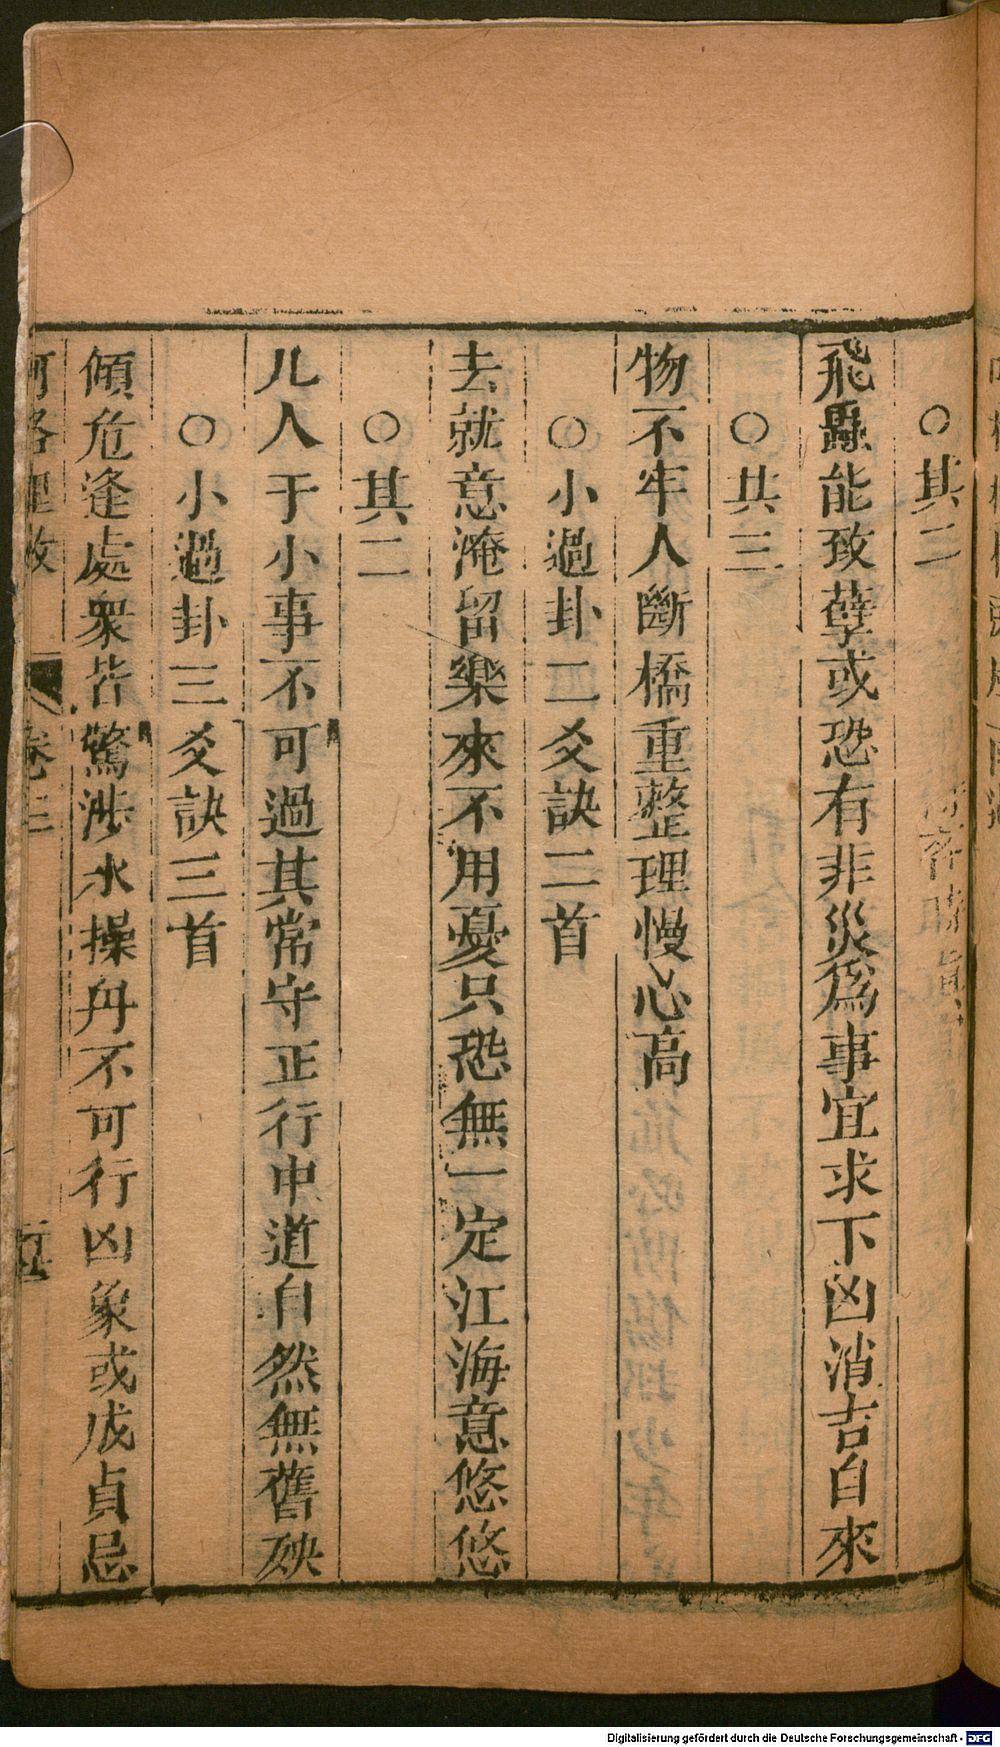 ○其二
飛蟲能致孽或恐有非災爲事宜求下凶消吉自來
○其三
物不牢人斷橋重整理慢心高
○小過卦二爻訣二首
去就意淹留樂來不用憂只恐無一定江海意悠悠
○其二
凡人于小事不可過其常守正行中道自然無舊殃
○小過卦三爻訣三首
傾危逢處衆皆驚涉水操舟不可行凶象或成貞忌
河洛理數 卷七
Digitalisierung gefördert durch die Deutsche Forschungsgemeinschaft - DFG